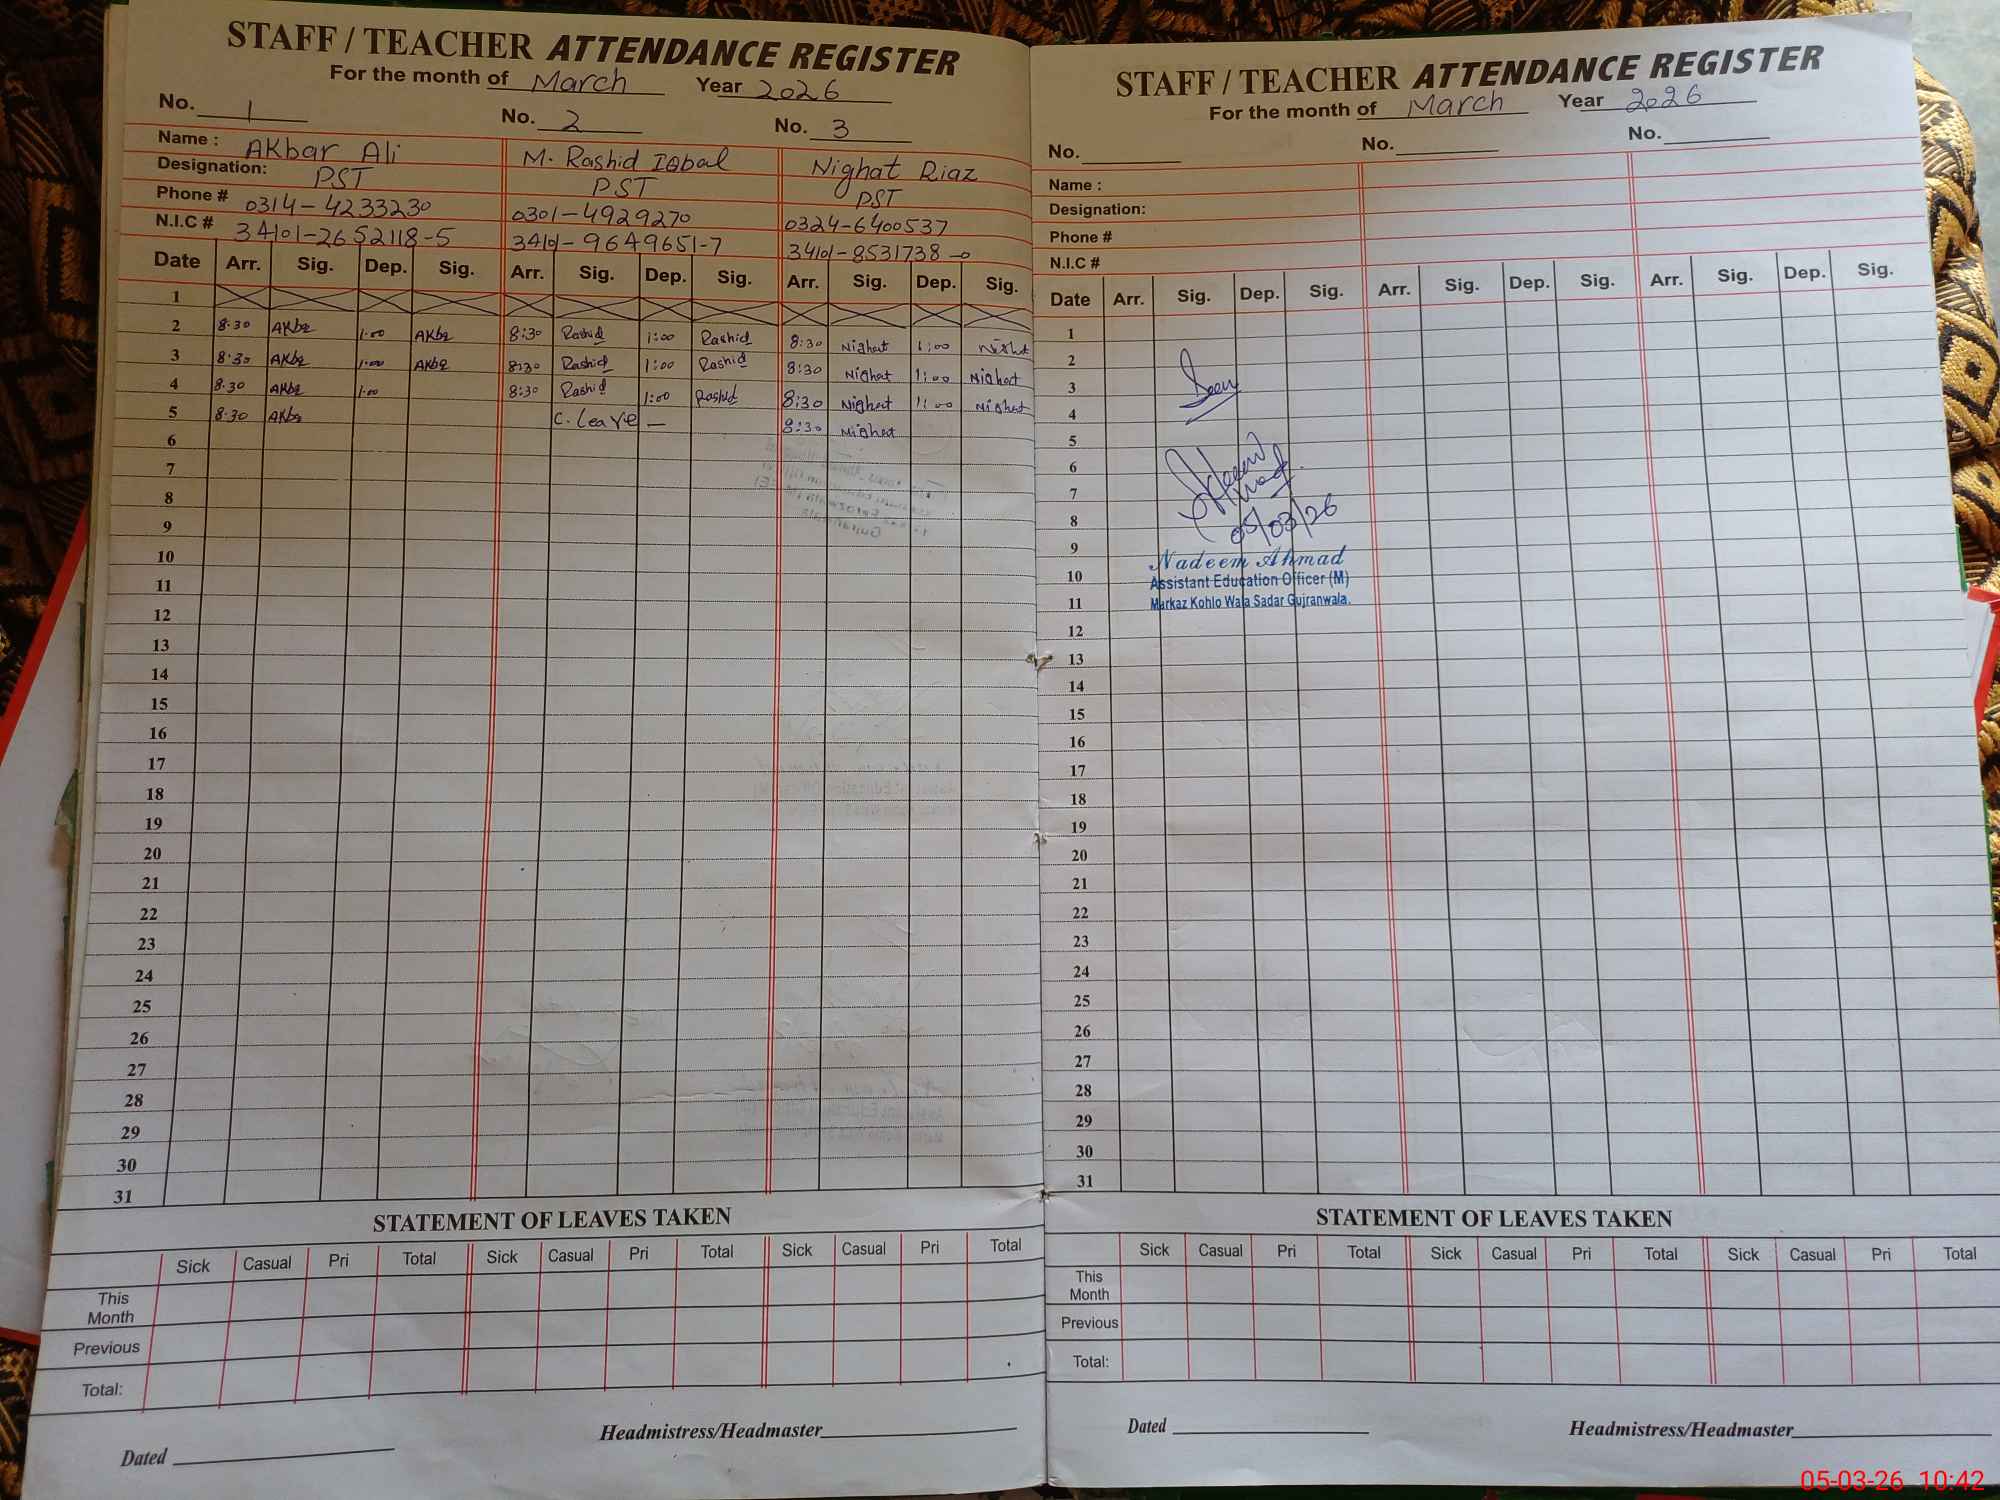 STAFF / TEACHER ATTENDANCE REGISTER
For the month of March Year 2026
No. 1 No. 2 No. 3
Name : Akbar Ali M. Rashid Iqbal Nighat Riaz
Designation: PST PST PST
Phone # 0314-4233230 0301-4929270 0324-6400537
N.I.C # 34101-2652118-5 34101-9649651-7 34101-8531738-0
Date Arr. Sig. Dep. Sig. Arr. Sig. Dep. Sig. Arr. Sig. Dep. Sig.
1
2 8:30 Akbar 1:00 Akbar 8:30 Rashid 1:00 Rashid 8:30 Nighat 1:00 Nighat
3 8:30 Akbar 1:00 Akbar 8:30 Rashid 1:00 Rashid 8:30 Nighat 1:00 Nighat
4 8:30 Akbar 1:00 8:30 Rashid 1:00 Rashid 8:30 Nighat 1:00 Nighat
5 8:30 Akbar C. Leave — 8:30 Nighat
6
7
8
9
10
11
12
13
14
15
16
17
18
19
20
21
22
23
24
25
26
27
28
29
30
31
STATEMENT OF LEAVES TAKEN
Sick Casual Pri Total Sick Casual Pri Total Sick Casual Pri Total
This Month
Previous
Total:
Headmistress/Headmaster
Dated
STAFF / TEACHER ATTENDANCE REGISTER
For the month of March Year 2026
No. No. No.
Name :
Designation:
Phone #
N.I.C #
Date Arr. Sig. Dep. Sig. Arr. Sig. Dep. Sig. Arr. Sig. Dep. Sig.
1
2
3 Seen
4
5
6
7
8 05/03/26
9
Nadeem Ahmad
10 Assistant Education Officer (M)
11 Markaz Kohlo Wala Sadar Gujranwala.
12
13
14
15
16
17
18
19
20
21
22
23
24
25
26
27
28
29
30
31
STATEMENT OF LEAVES TAKEN
Sick Casual Pri Total Sick Casual Pri Total Sick Casual Pri Total
This Month
Previous
Total:
Dated Headmistress/Headmaster
05-03-26 10:42